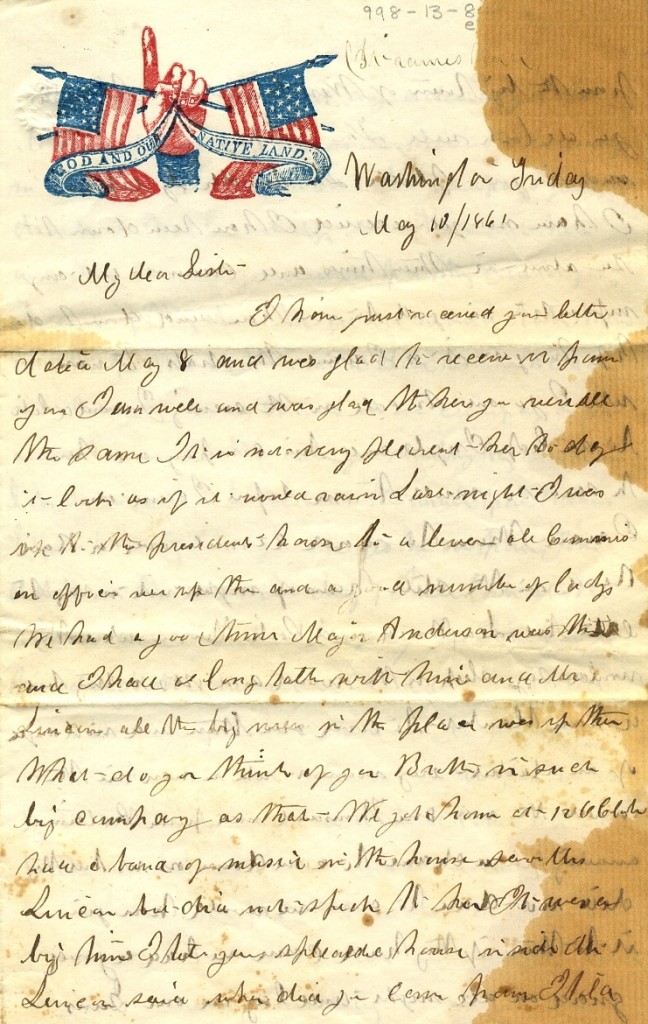 998-13-8
e
GOD AND OUR NATIVE LAND.
Washington Friday
May 10/1861
My dear Sister
I have just received your letter
dated May 8 and was glad to receive it from
you I am well and was glad to her you were all
the same It is not very plesent her to day
it looks as if it would rain Last night I was
up to the presidents house to a all Commis
on officer was up ther and a good number of ladys
We had a good time Major Anderson was ther
and I had a long talk with him and Mr
Lincoln all the big men in the place was up ther
What do you think of your Brother in such
big company as that We got home at 12 oclock
had a band of music in the house saw Mrs
Lincoln but did not speek to her It was a
big time I tell you splended house inside Mr
Lincoln said when did you come from I told